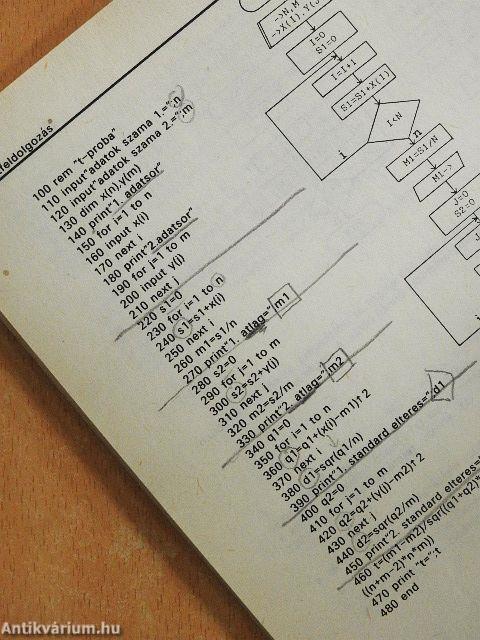 feldolgozás
->N,M
->X(I),Y(J
I=0
S1=0
I=I+1
S1=S1+X(I)
I<N
n
i
M1=S1/N
M1->
J=0
S2=0
J
100 rem "t-proba"
110 input"adatok szama 1.=";n
120 input"adatok szama 2.=";m
130 dim x(n),y(m)
140 print"1. adatsor"
150 for i=1 to n
160 input x(i)
170 next i
180 print"2.adatsor"
190 for j=1 to m
200 input y(j)
210 next j
220 s1=0
230 for i=1 to n
240 s1=s1+x(i)
250 next i
260 m1=s1/n
270 print"1. atlag=";m1
280 s2=0
290 for j=1 to m
300 s2=s2+y(j)
310 next j
320 m2=s2/m
330 print"2. atlag=";m2
340 q1=0
350 for i=1 to n
360 q1=q1+(x(i)-m1)↑2
370 next i
380 d1=sqr(q1/n)
390 print"1. standard elteres=";d1
400 q2=0
410 for j=1 to m
420 q2=q2+(y(j)-m2)↑2
430 next j
440 d2=sqr(q2/m)
450 print"2. standard elteres=
460 t=(m1-m2)/sqr((q1+q2)*
((n+m-2)*n*m))
470 print "t=";t
480 end
Antikvárium.hu